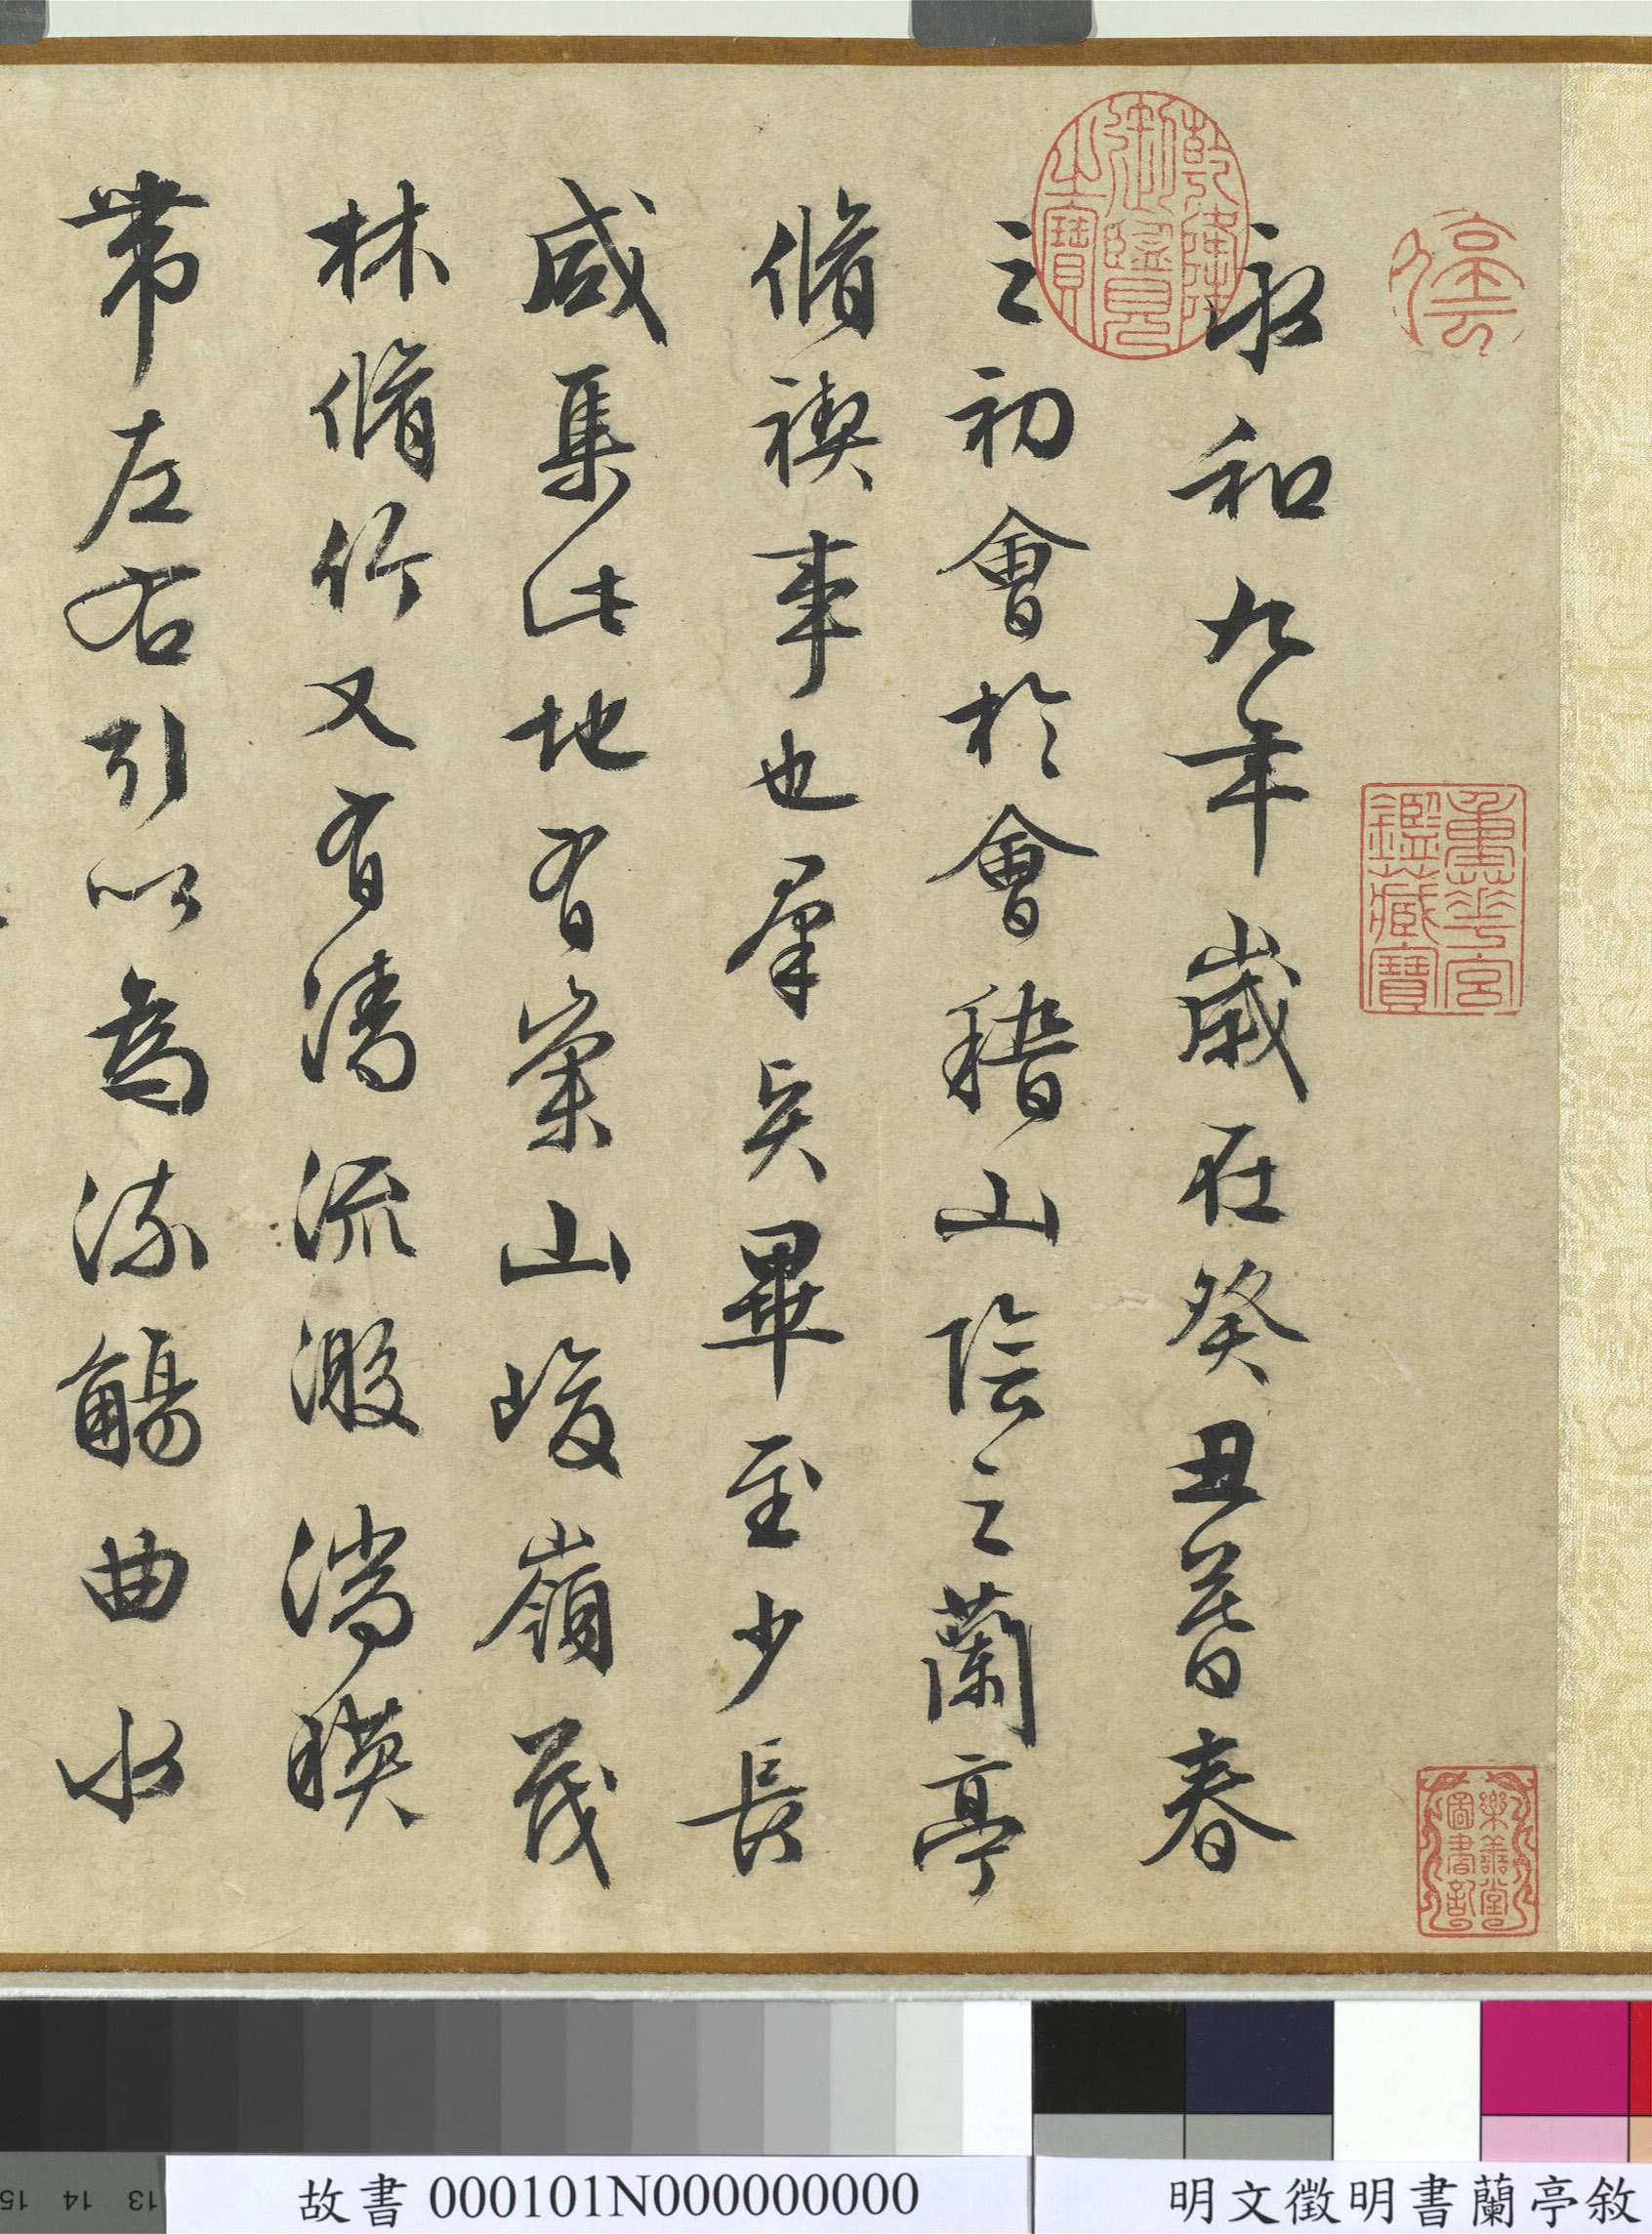 停雲
重華宮鑑藏寶
樂善堂圖書記
乾隆御覽之寶
永和九年歲在癸丑暮春
之初會於會稽山陰之蘭亭
脩禊事也羣賢畢至少長
咸集此地有崇山峻嶺茂
林脩竹又有清流激湍暎
帶左右引以為流觴曲水
15 14 13
故書 000101N000000000
明文徵明書蘭亭敘